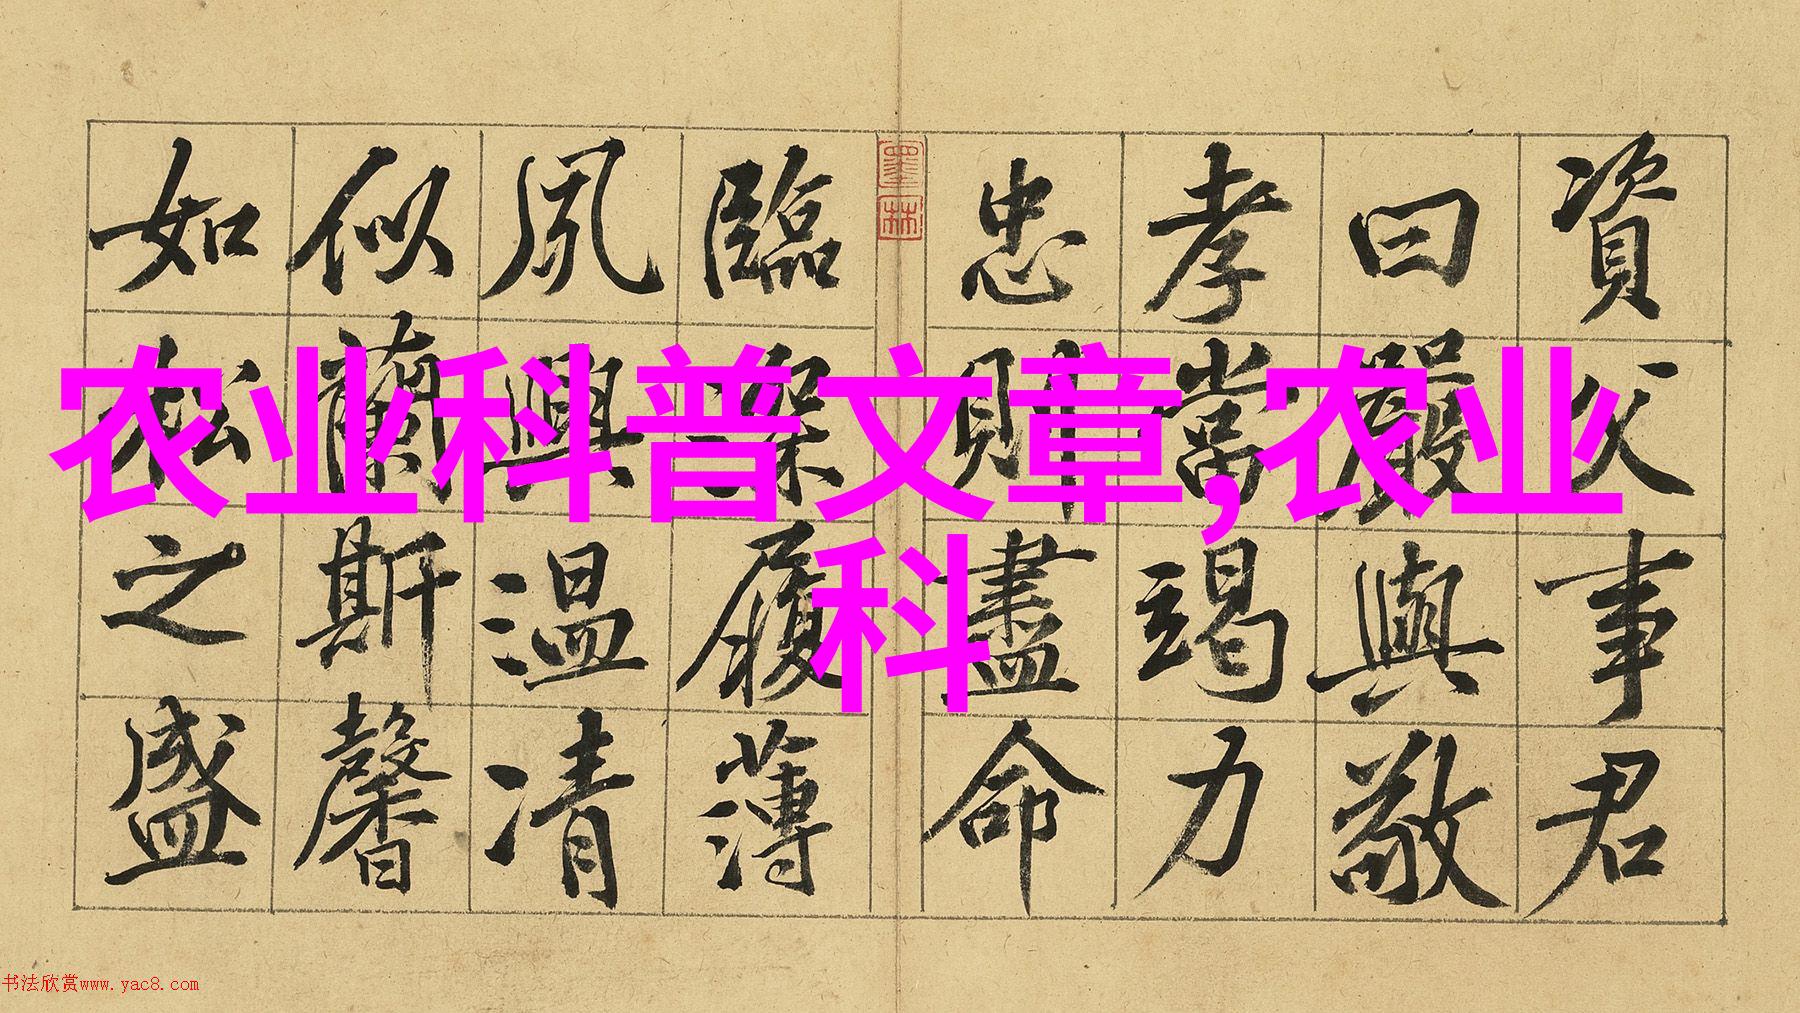 農业科普文章,农业
科
資父事君
曰嚴與敬
孝當竭力
忠則盡命
墨林
臨深履薄
夙興温凊
似蘭斯馨
如松之盛
书法欣赏www.yac8.com